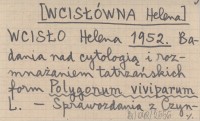 [WCISŁÓWNA Helena]
WCISŁO Helena 1952. Ba-
dania nad cytologią i roz-
mnażaniem tatrzańskich
form Polygonum viviparum
L. – Sprawozdania z Czyn-